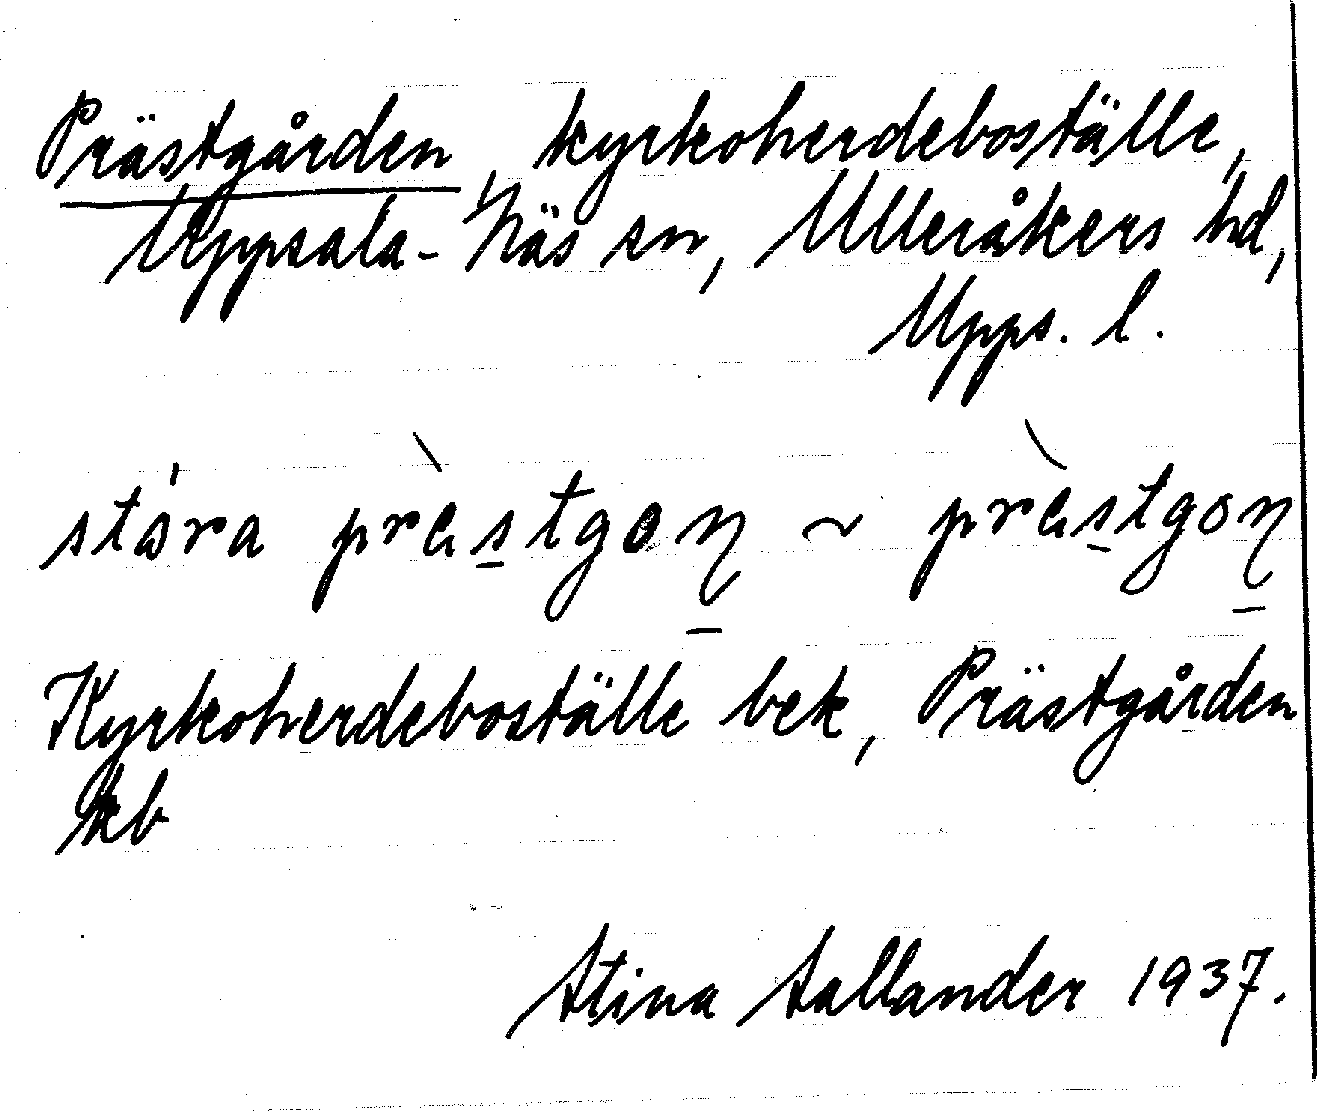 Prästgården, kyrkoherdeboställe,
Uppsala-Näs sn, Ulleråkers hd,
Upps. l.
stóra prèstgoŋ ~ prèstgoŋ
Kyrkoherdeboställe bek, Prästgården
kb
Stina Sallander 1937.